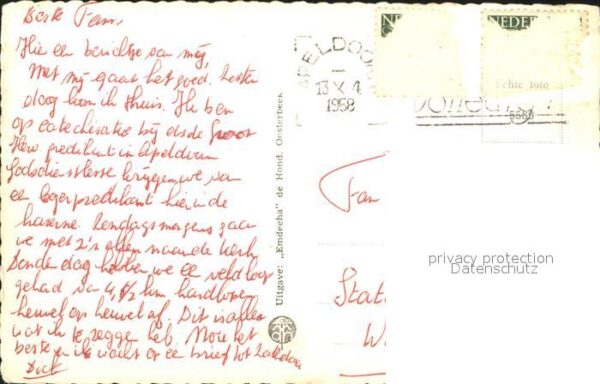 Beste Fam.
Hier een berichtje van mij,
Met mij gaat het goed,
daag kom ik thuis. Ik ben
op catechisatie bij ds de Groot
Herv predikant in Apeldoorn
Godsdienstlesse krijgen we van
een legerpredikant hier in de
kazerne. Zondagsmorgens gaan
we met z'n allen naar de kerk
Donderdag hebben we een veldloop
gehad van 4,1/2 km hardlopen
heuvel op heuvel af. Dit is alles
wat ik te zeggen heb. Nou het
beste en ik wacht op een brief tot
Dick
Uitgave: „Emdeeha" de Hond. Oosterbeek
APELDOO
13 X 4
1958
NE
NEDER
Echte foto
6580
Fam
Stat
W
privacy protection
Datenschutz